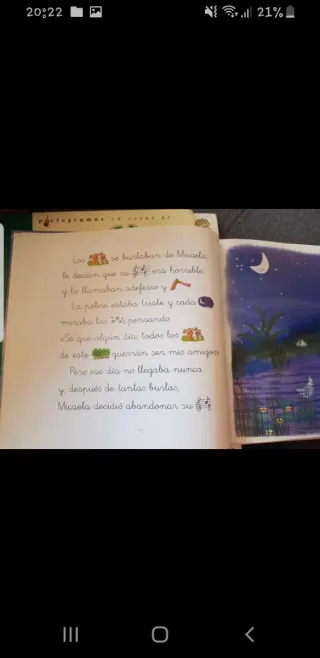 20:22
21%
Pictogramas en lugar de
Los se burlaban de Micaela,
le decían que su era horrible
y la llamaban adefesio y
La pobre estaba triste y cada
miraba las pensando:
«Sé que algún día, todos los
de este querrán ser mis amigos»
Pero ese día no llegaba nunca
y, después de tantas burlas,
Micaela decidió abandonar su